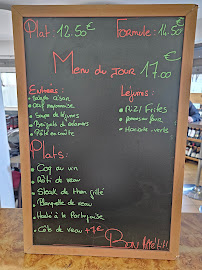 Plat 12.50€ Formule: 14.50€
Menu du jour 17.00€
Entrées:
Salade César
Oeuf mayonnaise
Soupe de légumes
Beignets de calamars
Pâté en croûte
Légumes:
Riz / Frites
Pommes au four
Haricots verts
Plats:
Coq au vin
Rôti de veau
Steak de thon grillé
Blanquette de veau
Morue à la Portugaise
Côte de veau +7€
Bon App!!!